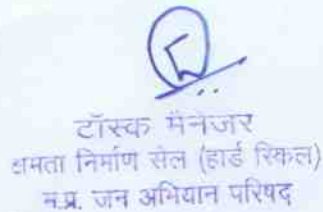 टॉस्क मैनेजर
क्षमता निर्माण सेल (हार्ड स्किल)
म.प्र. जन अभियान परिषद